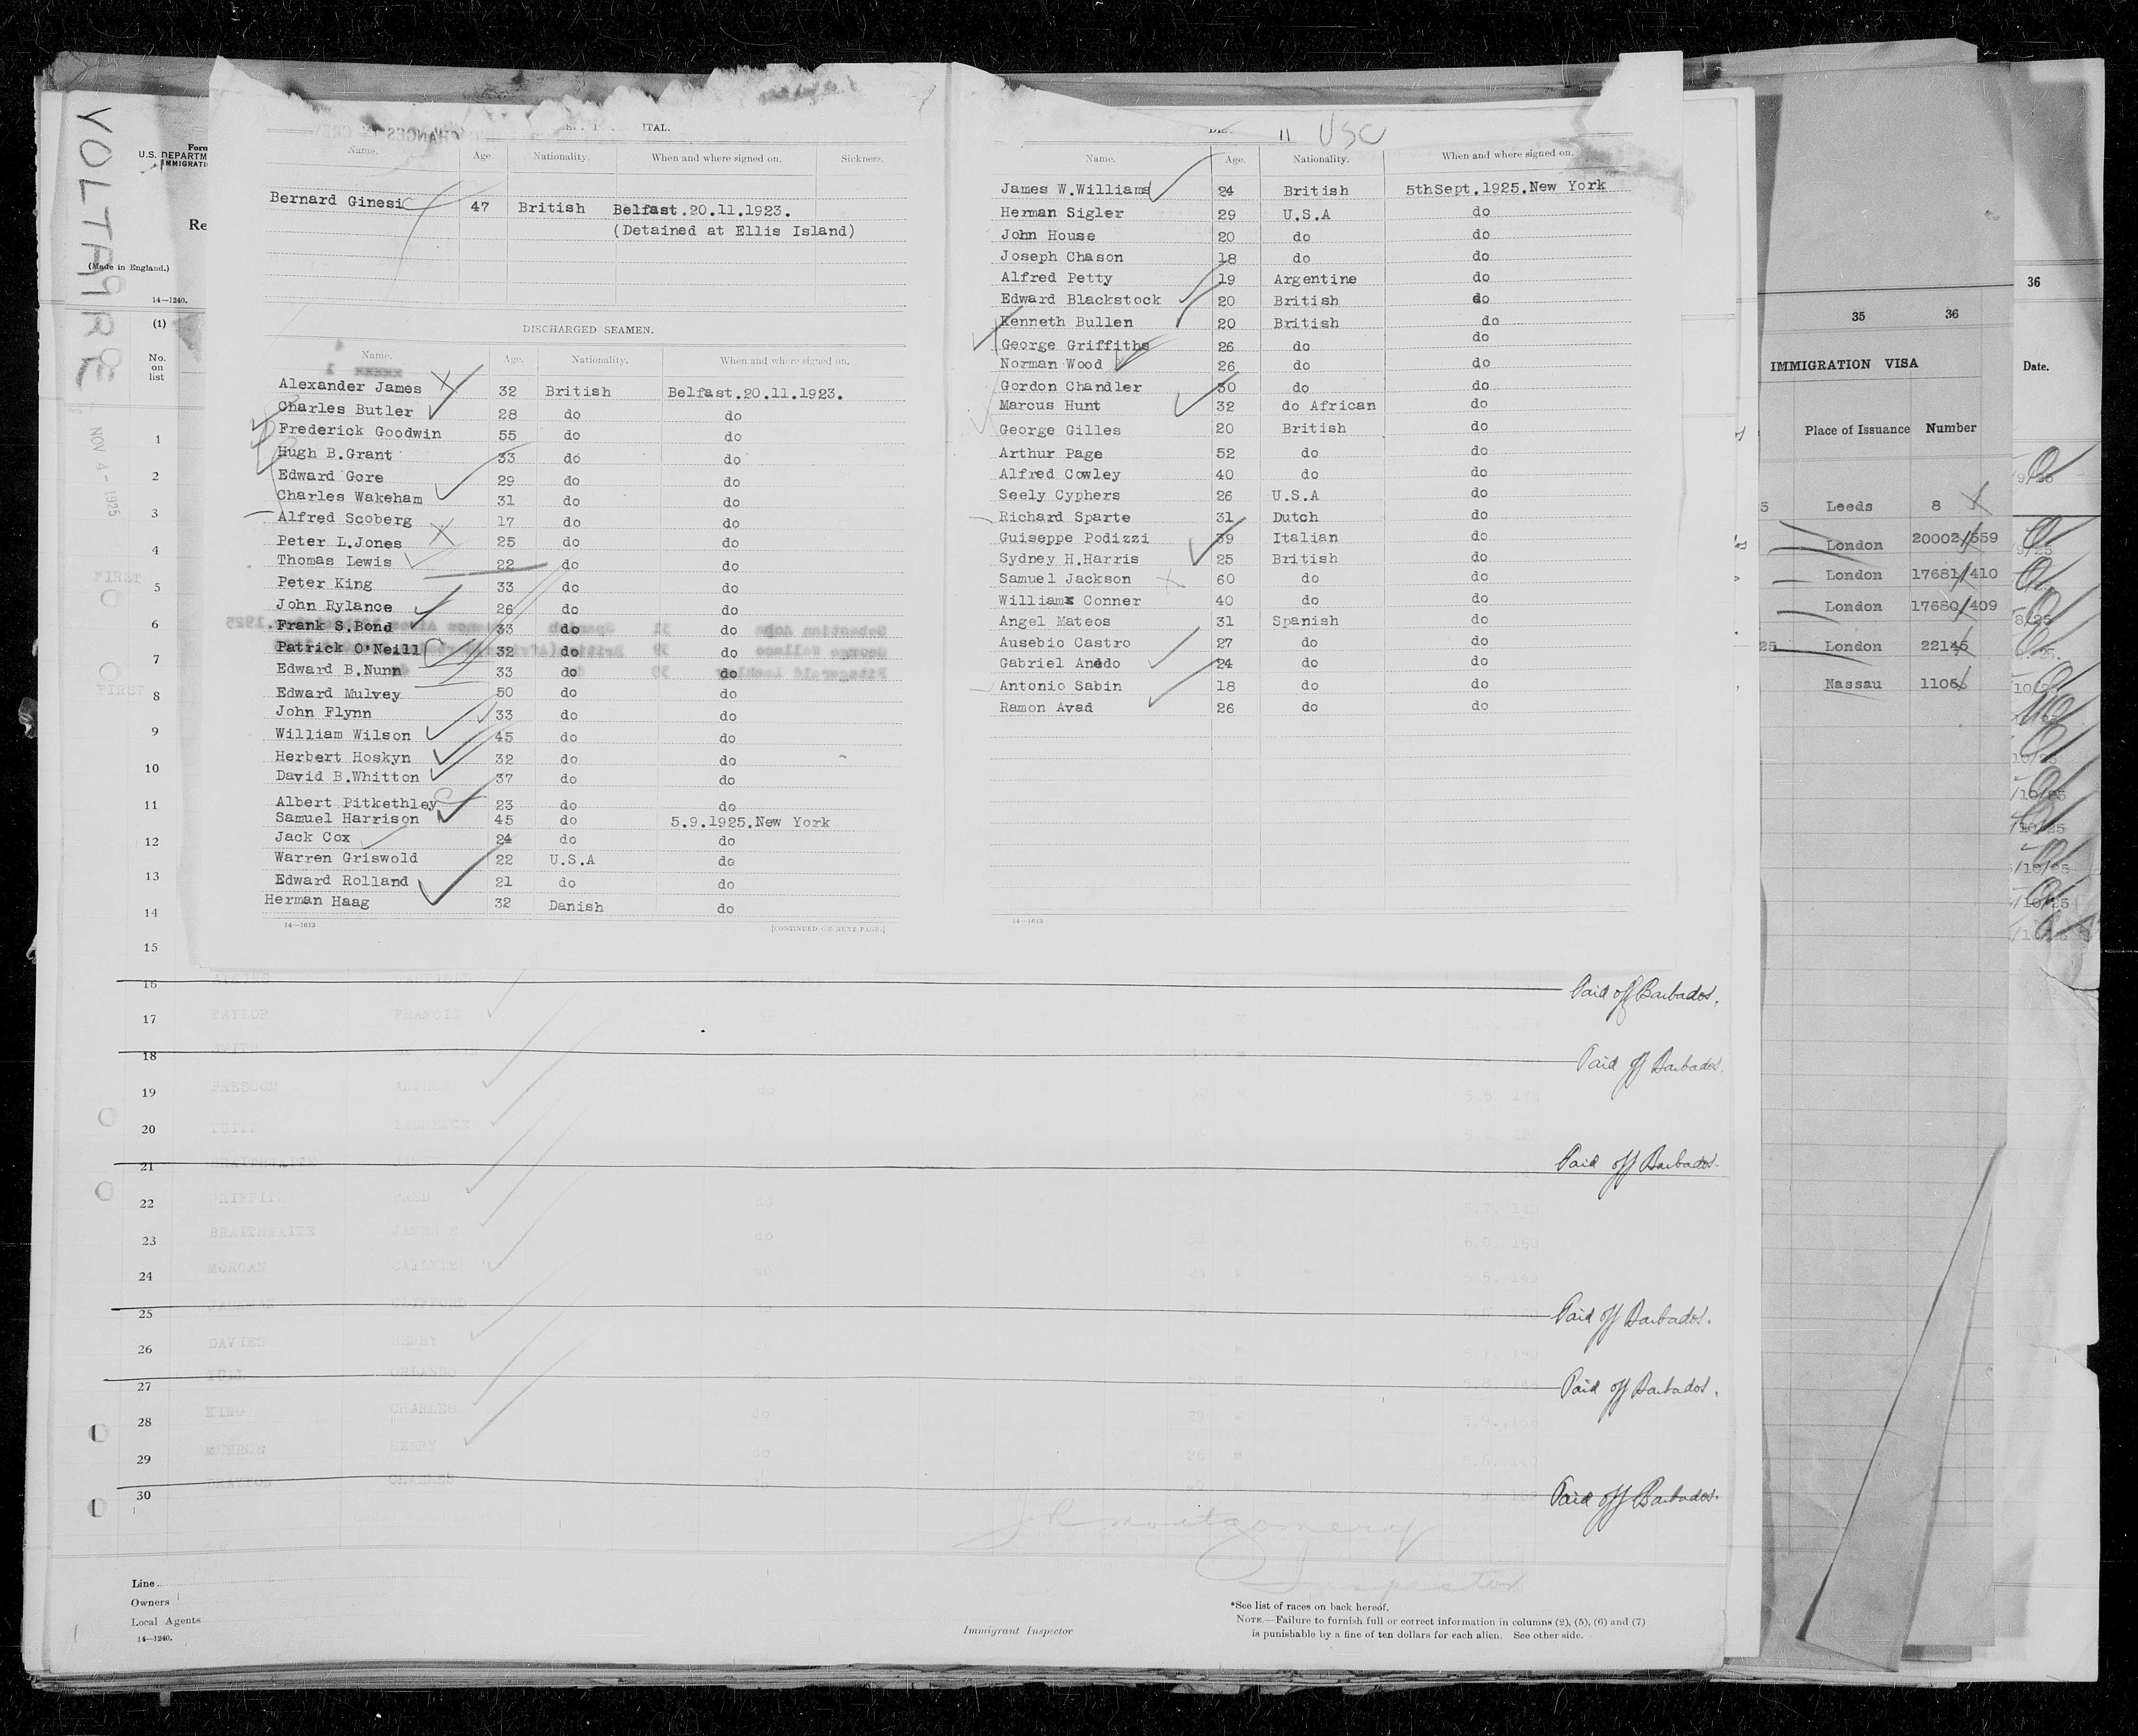 VOLTAIRE
NOV 4 - 1925
U.S. DEPARTM
IMMIGRATI
Re
(Made in England.)
14—1240.
(1)
No. on list
ITAL.
Name. Age. Nationality. When and where signed on. Sickness.
Bernard Ginesi 47 British Belfast.20.11.1923.
(Detained at Ellis Island)
DISCHARGED SEAMEN.
Name. Age. Nationality. When and where signed on.
Alexander James 32 British Belfast.20.11.1923.
Charles Butler 28 do do
Frederick Goodwin 55 do do
Hugh B.Grant 33 do do
Edward Gore 29 do do
Charles Wakeham 31 do do
Alfred Scoberg 17 do do
Peter L.Jones 25 do do
Thomas Lewis 22 do do
Peter King 33 do do
John Rylance 26 do do
Frank S.Bond 33 do do
Patrick O'Neill 32 do do
Edward B.Nunn 33 do do
Edward Mulvey 50 do do
John Flynn 33 do do
William Wilson 45 do do
Herbert Hoskyn 32 do do
David B.Whitton 37 do do
Albert Pitkethley 23 do do
Samuel Harrison 45 do 5.9.1925.New York
Jack Cox 24 do do
Warren Griswold 22 U.S.A do
Edward Rolland 21 do do
Herman Haag 32 Danish do
14—1613 [CONTINUED ON NEXT PAGE.]
11 USC
Name. Age. Nationality. When and where signed on.
James W.Williams 24 British 5thSept.1925.New York
Herman Sigler 29 U.S.A do
John House 20 do do
Joseph Chason 18 do do
Alfred Petty 19 Argentine do
Edward Blackstock 20 British do
Kenneth Bullen 20 British do
George Griffiths 26 do do
Norman Wood 26 do do
Gordon Chandler 30 do do
Marcus Hunt 32 do African do
George Gilles 20 British do
Arthur Page 52 do do
Alfred Cowley 40 do do
Seely Cyphers 26 U.S.A do
Richard Sparte 31 Dutch do
Guiseppe Podizzi 39 Italian do
Sydney H.Harris 25 British do
Samuel Jackson 60 do do
Williamx Conner 40 do do
Angel Mateos 31 Spanish do
Ausebio Castro 27 do do
Gabriel Anedo 24 do do
Antonio Sabin 18 do do
Ramon Avad 26 do do
14—1613
35 36
IMMIGRATION VISA
Place of Issuance Number
Leeds 8
London 20002/559
London 17681/410
London 17680/409
London 22145
Nassau 1106
36
Date.
1
2
3
4
5
6
7
8
9
10
11
12
13
14
15
16 Paid off Barbados.
17 TAYLOR FRANCIS
18 Paid off Barbados.
19 PRESCOD ARTHUR do
20 TUITT LAURENCE
21 BRAITHWAITE JAMES Paid off Barbados.
22 GRIFFITH FRED do
23 BRAITHWAITE JAMES do
24 MORGAN do
25 Paid off Barbados.
26 DAVIES HENRY
27 ORLANDO Paid off Barbados.
28 KING CHARLES do
29 MUNROE HENRY do
30 DRAYTON CHARLES Paid off Barbados.
J R Montgomery
Inspector
Line
Owners
Local Agents
14—1240.
Immigrant Inspector
*See list of races on back hereof.
NOTE.—Failure to furnish full or correct information in columns (2), (5), (6) and (7)
is punishable by a fine of ten dollars for each alien. See other side.